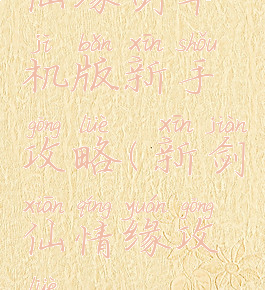 仙缘剑单
jī bǎn xīn shǒu
机版新手
gōng lüè xīn jiàn
攻略(新剑
xiān qíng yuán gōng
仙情缘攻
lüè